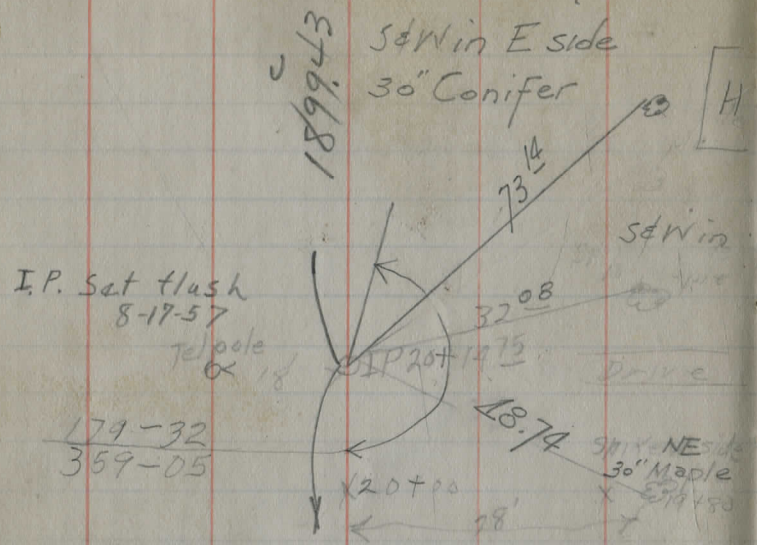 1899.43
S&W in E side
30" Conifer
H
73 14
S&W in
I.P. Set flush
8-17-57
32 08
Tel pole
18'
IP 20+14 75
Drive
48.74
179-32
359-05
Spike NE side
30" Maple
X20+00
X
19+80
28'